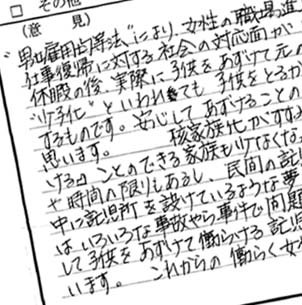 □ その他
(意 見)
"男女雇用均等法"により、女性の職場進
仕事復帰に対する社会の対応面が
休暇の後、実際に子供をあずけて元の
"少子化"といわれても子供をとるか
するものです。安心してあずけることの
思います。 核家族化がすすみ
ける』ことのできる家族も少なくな
や時間の限りもあるし、民間の託
中に託児所を設けているような夢
はいろいろな事故やら事件で問題
して子供をあずけて働らける託児
います。 これからの働らく女